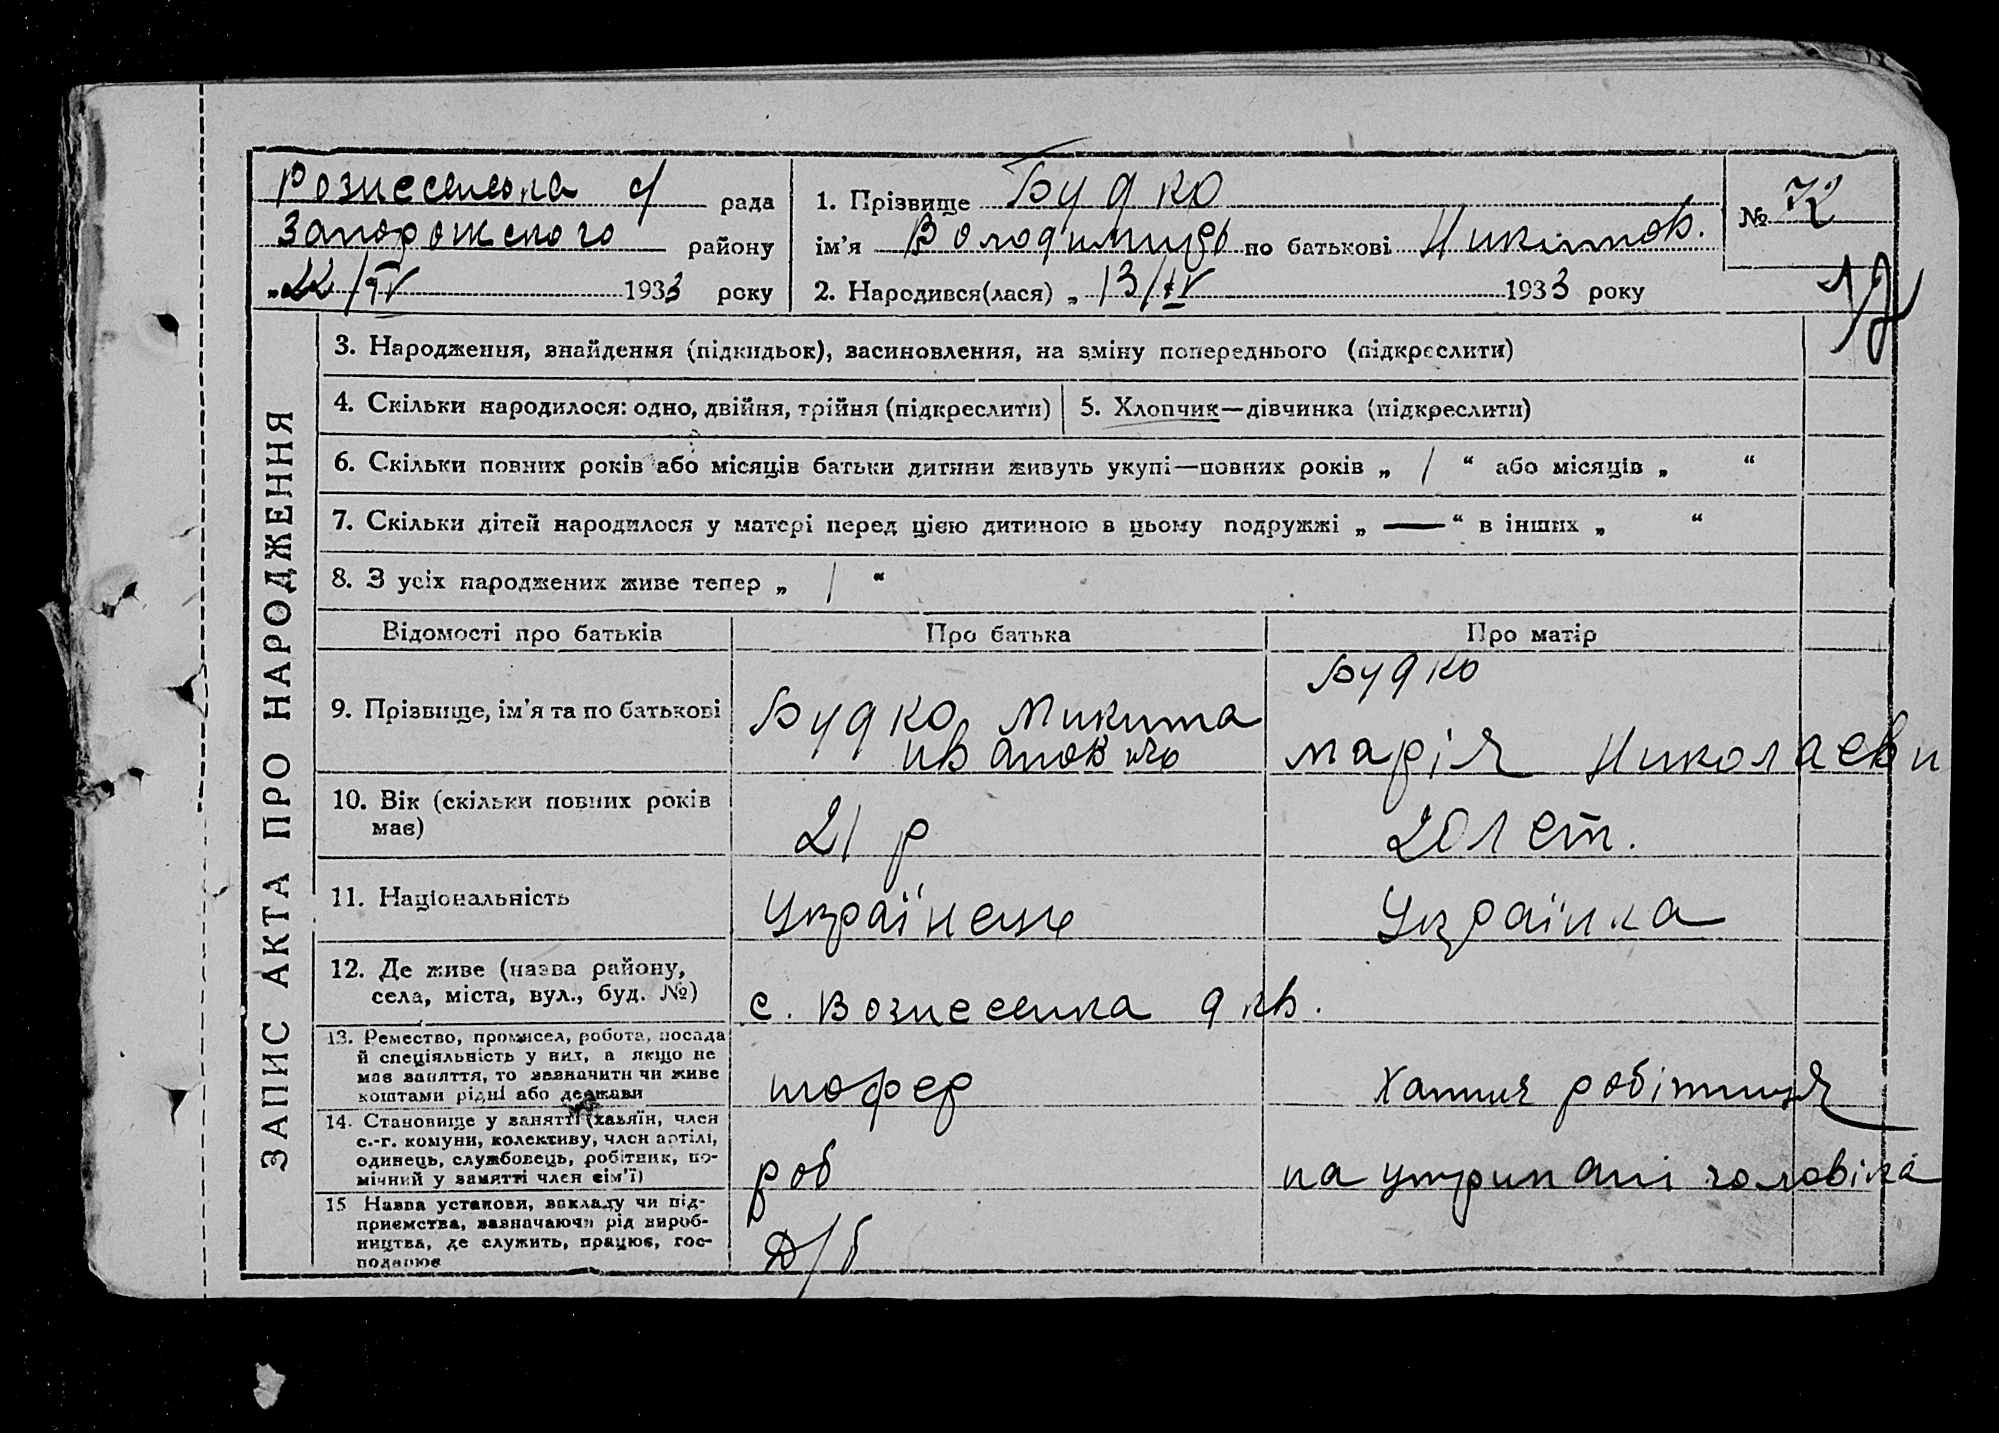 Вознесенська с/ рада
Запорожського району
„22/IV 1933 року
1. Прізвище Будко
ім'я Володимир по батькові Никитов.
2. Народився(лася) „13/IV 1933 року
№ 72
ЗАПИС АКТА ПРО НАРОДЖЕННЯ
3. Народження, знайдення (підкидьок), засиновлення, на зміну попереднього (підкреслити)
4. Скільки народилося: одно, двійня, трійня (підкреслити) 5. Хлопчик—дівчинка (підкреслити)
6. Скільки повних років або місяців батьки дитини живуть укупі—повних років „ 1 “ або місяців „ “
7. Скільки дітей народилося у матері перед цією дитиною в цьому подружжі „ — “ в інших „ “
8. З усіх народжених живе тепер „ 1 “
Відомості про батьків Про батька Про матір
9. Прізвище, ім'я та по батькові
Будко Микита
Іванович
Будко
Марія Николаевн
10. Вік (скільки повних років
має)
21 р
20 лет.
11. Національність
Українець
Українка
12. Де живе (назва району,
села, міста, вул., буд. №)
с. Вознесенка 9 кв.
13. Ремество, промисел, робота, посада
й спеціяльність у них, а якщо не
має заняття, то зазначити чи живе
коштами рідні або держави
шофер
Хатня робітниця
14. Становище у занятті (хазяїн, член
с.-г. комуни, колективу, член артілі,
одинець, службовець, робітник, по-
мічний у занятті член сім'ї)
роб
на утримані чоловіка
15 Назва установи, закладу чи під-
приємства, зазначаючи рід вироб-
ництва, де служить, працює, гос-
подарює
Д/б